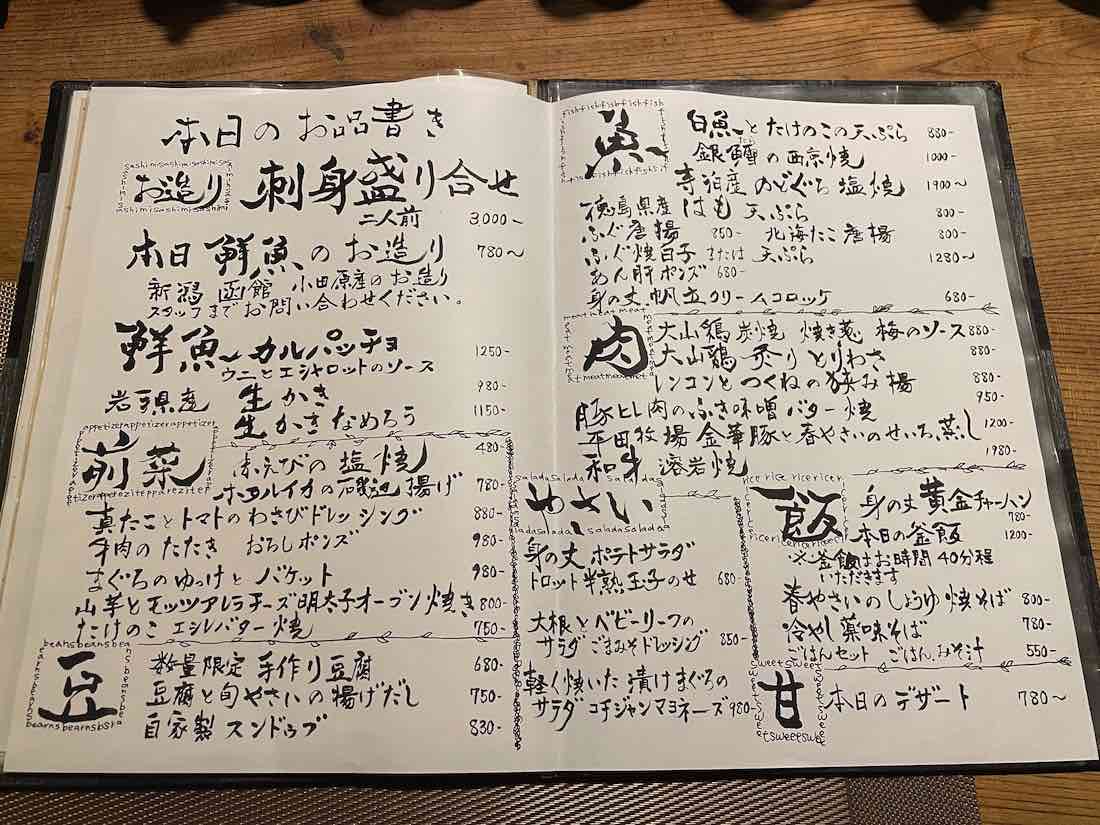 本日のお品書き
お造り 刺身盛り合せ
二人前 3,000〜
本日鮮魚のお造り 780〜
新潟 函館 小田原産のお造り
スタッフまでお問い合わせください。
鮮魚カルパッチョ
ウニとエシャロットのソース 1250-
岩手県産 生かき 980-
生かきなめろう 1150-
前菜
赤えびの塩焼 480-
ホタルイカの磯辺揚げ 780-
真たことトマトのわさびドレッシング 880-
牛肉のたたき おろしポンズ 980-
まぐろのゆっけとバケット 980-
山芋とモッツアレラチーズ明太子オーブン焼き 800-
たけのこエシレバター焼 750-
豆
数量限定 手作り豆腐 680-
豆腐と旬やさいの揚げだし 750-
自家製スンドゥブ 830-
魚
白魚とたけのこの天ぷら 880-
銀鱈の西京焼 1000-
寺泊産のどぐろ塩焼 1900〜
徳島県産はも天ぷら 800-
ふぐ唐揚 850- 北海たこ唐揚 800-
ふぐ焼白子または天ぷら 1280〜
あん肝ポンズ 680-
身の丈帆立クリームコロッケ 680-
肉
大山鶏炭焼 焼き葱 梅のソース 880-
大山鶏 炙りとりわさ 880-
レンコンとつくねの挟み揚 880-
豚ヒレ肉のふき味噌バター焼 950-
平田牧場金華豚と春やさいのせいろ蒸し 1200-
和牛 溶岩焼 1980-
やさい
身の丈ポテトサラダ
トロット半熟玉子のせ 680-
大根とベビーリーフの
サラダごまみそドレッシング 850-
軽く焼いた漬けまぐろの
サラダコチジャンマヨネーズ 980-
飯
身の丈黄金チャーハン 780-
本日の釜飯 1200-
※釜飯はお時間40分程
いただきます
春やさいのしょうゆ焼そば 800-
冷やし薬味そば 780-
ごはんセット ごはん、みそ汁 550-
甘
本日のデザート 780〜